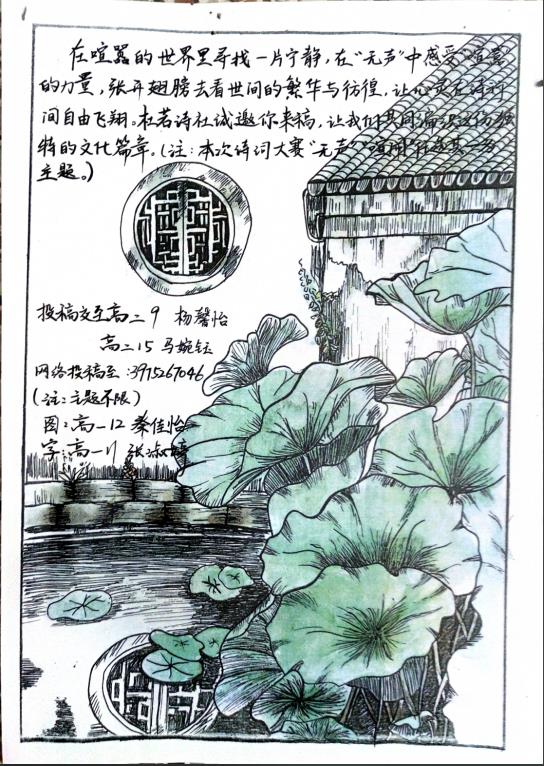 在喧嚣的世界里寻找一片宁静，在“无声”中感受“喧嚣”
的力量，张开翅膀去看世间的繁华与彷徨，让心灵在诗行
间自由飞翔。杜若诗社诚邀你来稿，让我们共同谱写这份独
特的文化篇章。（注：本次诗词大赛“无声”“喧闹”任选其一为
主题。）
投稿交至高二9 杨馨怡
高二15 马婉钰
网络投稿至：3975267046
（注：主题不限）
图：高一12 秦佳怡
字：高一11 张淑婷